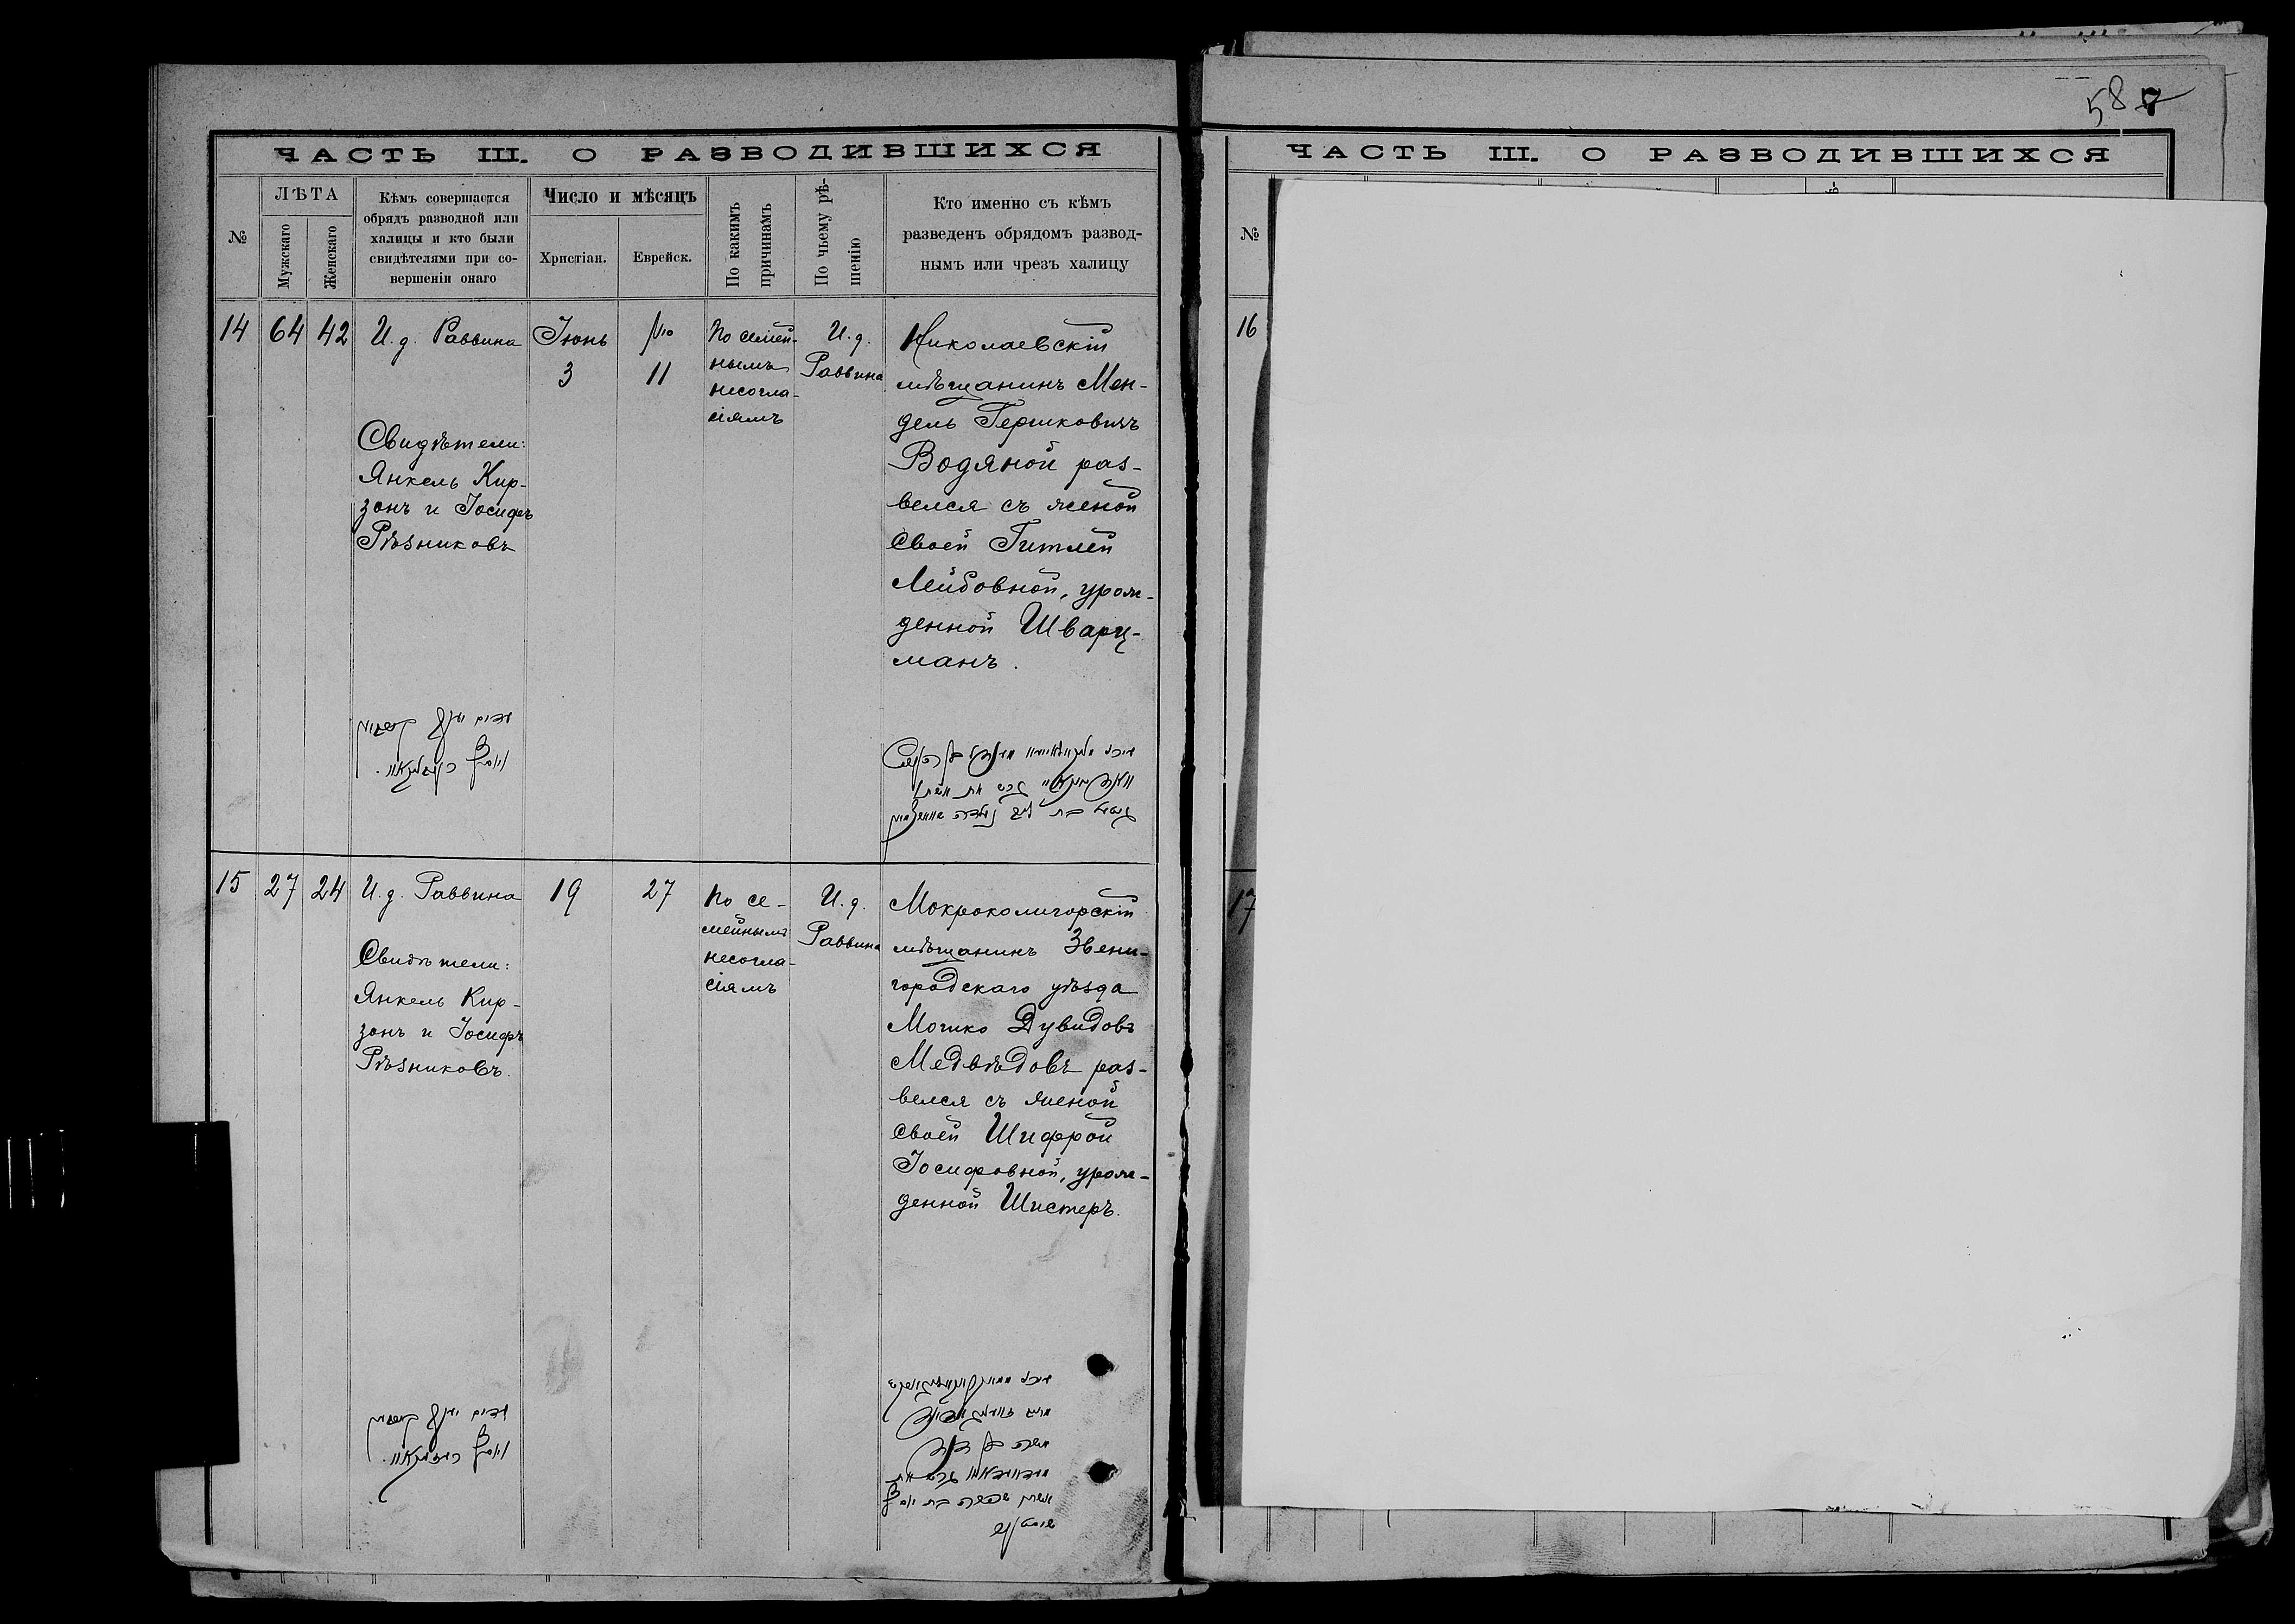 587
ЧАСТЬ III. О РАЗВОДИВШИХСЯ
№
ЛѢТА
Мужскаго
Женскаго
Кѣмъ совершается
обрядъ разводной или
халицы и кто были
свидѣтелями при со-
вершеніи онаго
Число и мѣсяцъ
Христіан.
Еврейск.
По какимъ
причинамъ
По чьему рѣ-
шенію
Кто именно съ кѣмъ
разведенъ обрядомъ развод-
нымъ или чрезъ халицу
14
64
42
И. д. Раввина
Свидѣтели:
Янкель Кир-
зонъ и Іосифъ
Рѣзниковъ
Іюнь
3
סיון
11
По семей-
нымъ
несогла-
сіямъ
И. д.
Раввина
Николаевскій
мѣщанинъ Мен-
дель Гершковичъ
Водяной раз-
велся съ женой
своей Гитлей
Лейбовной, урож-
денной Шварц-
манъ.
15
27
24
И. д. Раввина
Свидѣтели:
Янкель Кир-
зонъ и Іосифъ
Рѣзниковъ.
19
27
По се-
мейнымъ
несогла-
сіямъ
И. д.
Раввина
Мокрокалигорскій
мѣщанинъ Звени-
городскаго уѣзда
Мошко Дувидовъ
Медвѣдовъ раз-
велся съ женой
своей Шифрой
Іосифовной, урож-
денной Шистеръ.
ЧАСТЬ III. О РАЗВОДИВШИХСЯ
№
16
17